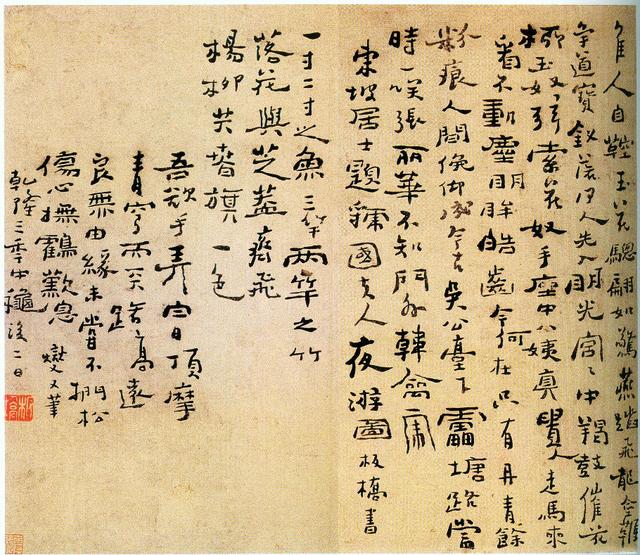 佳人自鞚玉花驄翩如驚燕蹋飛龍金鞭
爭道寶釵落何人先入明光宮宮中羯鼓催花
柳玉奴弦索花奴手座中八姨真貴人走馬來
看不動塵明眸皓齒今何在只有丹青餘
粉痕人間俛仰成今古吳公臺下雷塘路當
時一笑張麗華不知門外韓擒虎
東坡居士題虢國夫人夜游圖板橋書
一寸二寸之魚三竿兩竿之竹
落花與芝蓋齊飛
楊柳共春旗一色
吾欲手弄白日頂摩
青穹而天路高遠
良無由緣未嘗不捫松
傷心撫鶴歎息燮又筆
乾隆三年中龝後二日